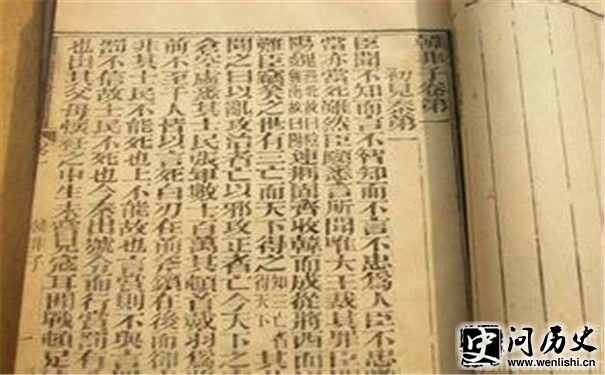 韓非子卷第一
初見秦第一
臣聞不知而言不智知而不言不忠爲人臣不忠
當亦當死雖然臣願悉言所聞唯大王裁其罪臣
陽魏燕北故曰陰魏南故曰陽連荆固齊收韓而成從將西面
難臣竊笑之世有三亡而天下得之知三亡者得天下其
聞之曰以亂攻治者亡以邪攻正者亡今天下之
倉空虛悉其士民張軍數十百萬其頓首戴羽爲
前不至千人皆以言死白刃在前斧鑕在後而卻
非其士民不能死也上不能故也言賞則不與言
罰不信故士民不死也今秦出號令而行賞罰有
也出其父母懷衽之中生未嘗見寇耳聞戰頓足
韓非子
史 问历史
www.wenlishi.cn